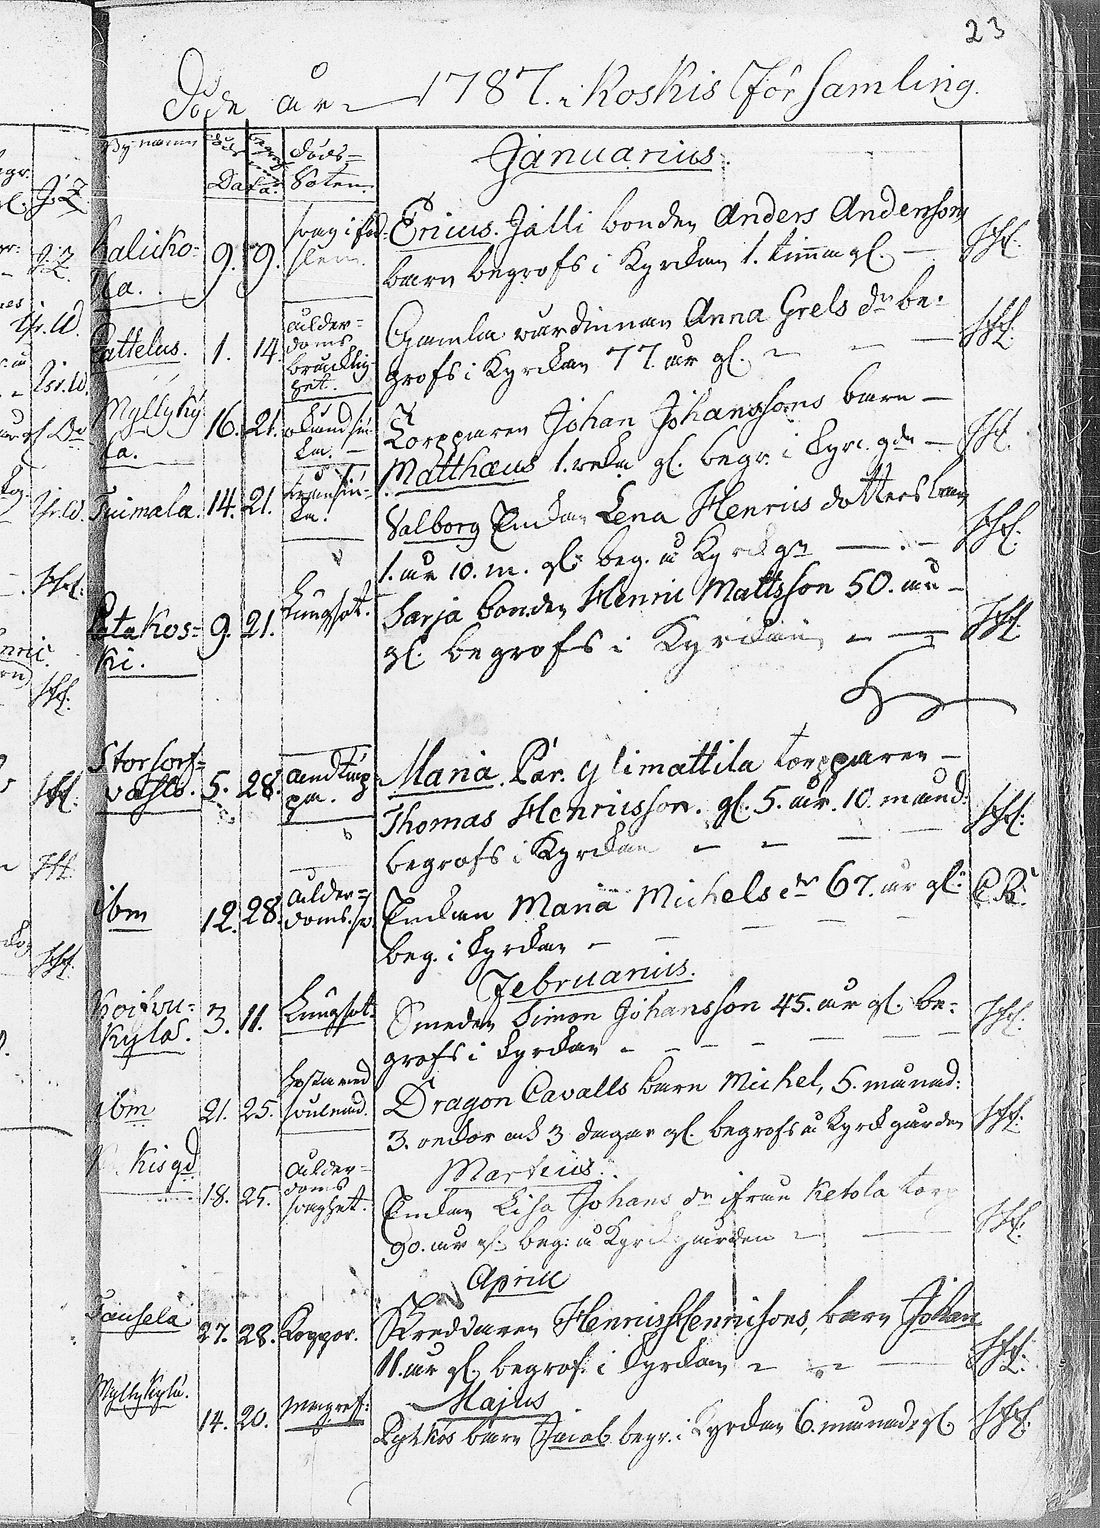 23
Döde år 1787. i Koskis Församling.
By namn
Döds
Data.
Döds=
Soten.
Januarius.
Ericus. Jälli bonden Anders Andersons
barn begrofs i Kyrckan 1. timma gl. —
9. 9.
Pattelus. 1. 14.
ålder=
doms
bräcklig-
het.
Gamla värdinnan Anna Grels dr be=
grofs i Kyrckan 77. år gl. — —
Myllyky
la. 16. 21.
Torpparen Johan Johanssons barn —
Matthæus 1. veka gl. begr. i Kyrc. gdn —
Tuimala. 14. 21.
Valborg Enckan Lena Henrics dotters barn
1. år 10. m. gl. beg. å Kyrckg. —
Patakos=
ki. 9. 21.
Lungsot.
Sarja bonden Henric Mattsson 50. år —
gl. begrofs i Kyrckan — —
Storsorf=
vasto. 5. 28.
andtäp
pa.
Maria. Pär. Ylimattila torpparen —
Thomas Henricsson. gl. 5. år. 10. månad.
begrofs i Kyrckan — —
ibm 12. 28.
ålder=
doms. s.
Enckan Maria Michels dr 67. år gl.
beg. i Kyrckan —
Februarius.
Koivu-
kylä. 3. 11. Lungsot.
Smeden Simon Johansson 45. år gl. be=
grofs i Kyrckan —
ibm 21. 25.
hosta med
Dragon Cavalls barn Michel, 5. månad.
3. veckor och 3 dagar gl. begrofs å Kyrckgården
Martius.
kis gd 18. 25.
Ålder=
doms
svaghet.
Enckan Lisa Johans dr ifrån Ketola torp
90. år gl. beg: å Kyrckgården —
Aprill
Tausela 27. 28. Koppor.
Skreddaren Henric Henricsons, barn Johan
11. år gl. begrof: i Kyrckan —
Majus
Myllykylä. 14. 20.
Pytkös barn Jacob begr. i Kyrckan 6. månad. gl.